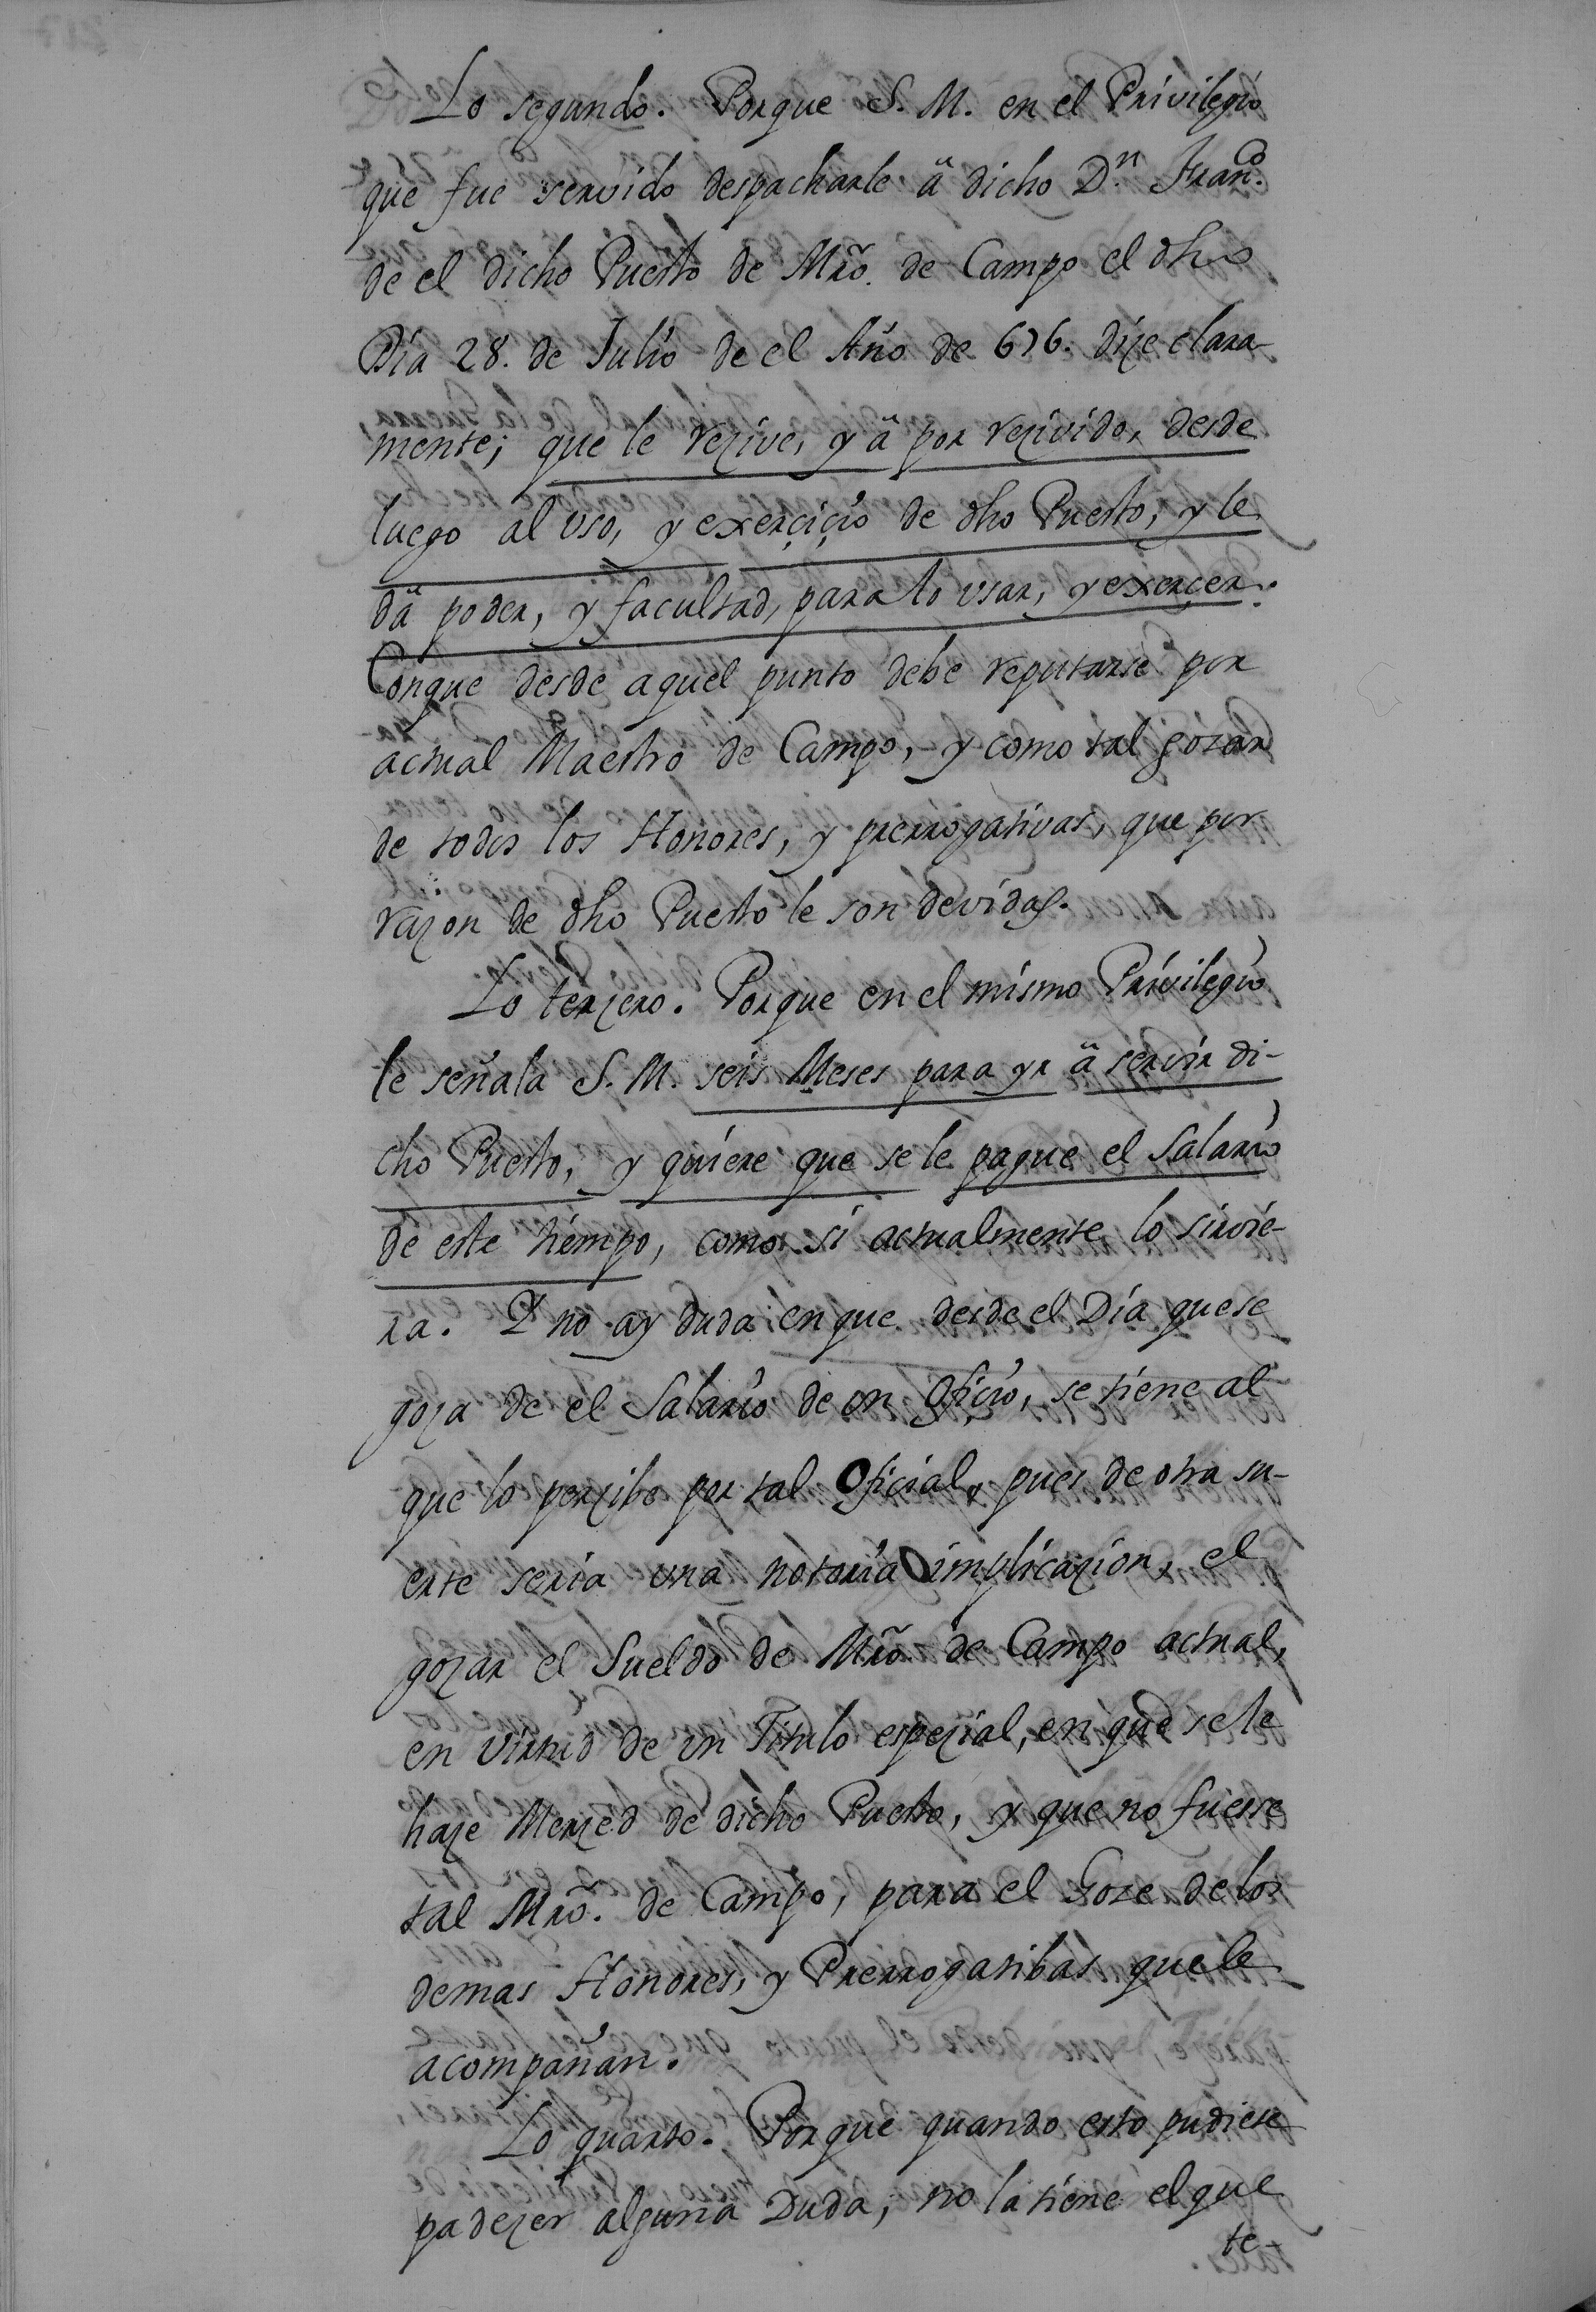 Lo segundo. Porque S. M. en el Privilegio
que fue servido despacharle â dicho Dn. Franco.
de el dicho Puesto de Mrõ. de Campo el dho
Día 28. de Julio de el Año de 676. dize clara-
mente; que le rezive, y â por rezivido, desde
luego al vso, y exerçiçio de dho Puesto; y le
dâ poder, y facultad, para lo vsar, y exerçer.
Conque desde aquel punto debe reputarse por
actual Maestro de Campo, y como tal gozar
de todos los Honores, y prerrogativas, que por
razon de dho Puesto le son devidas.
Lo terzero. Porque en el mismo Privilegio
le señala S. M. seis Meses para yr â servir di-
cho Puesto, y quiere que se le pague el Salario
de este tiempo, como si actualmente lo sirvie-
ra. Y no ay duda en que desde el Día que se
goza de el Salario de vn Ofiçio, se tiene al
que lo perzibe por tal Oficial, pues de otra su-
erte seria vna notoria implicazion, el
gozar el Sueldo de Mrõ de Campo actual,
en virtud de vn Titulo espezial, en que se le
haze Merzed de dicho Puesto, y que no fuesse
tal Mrõ. de Campo, para el Goze de los
demas Honores, y Prerrogatibas que le
acompañan.
Lo quarto. Porque quando esto pudiese
padezer alguna Duda, no la tiene el que
te-